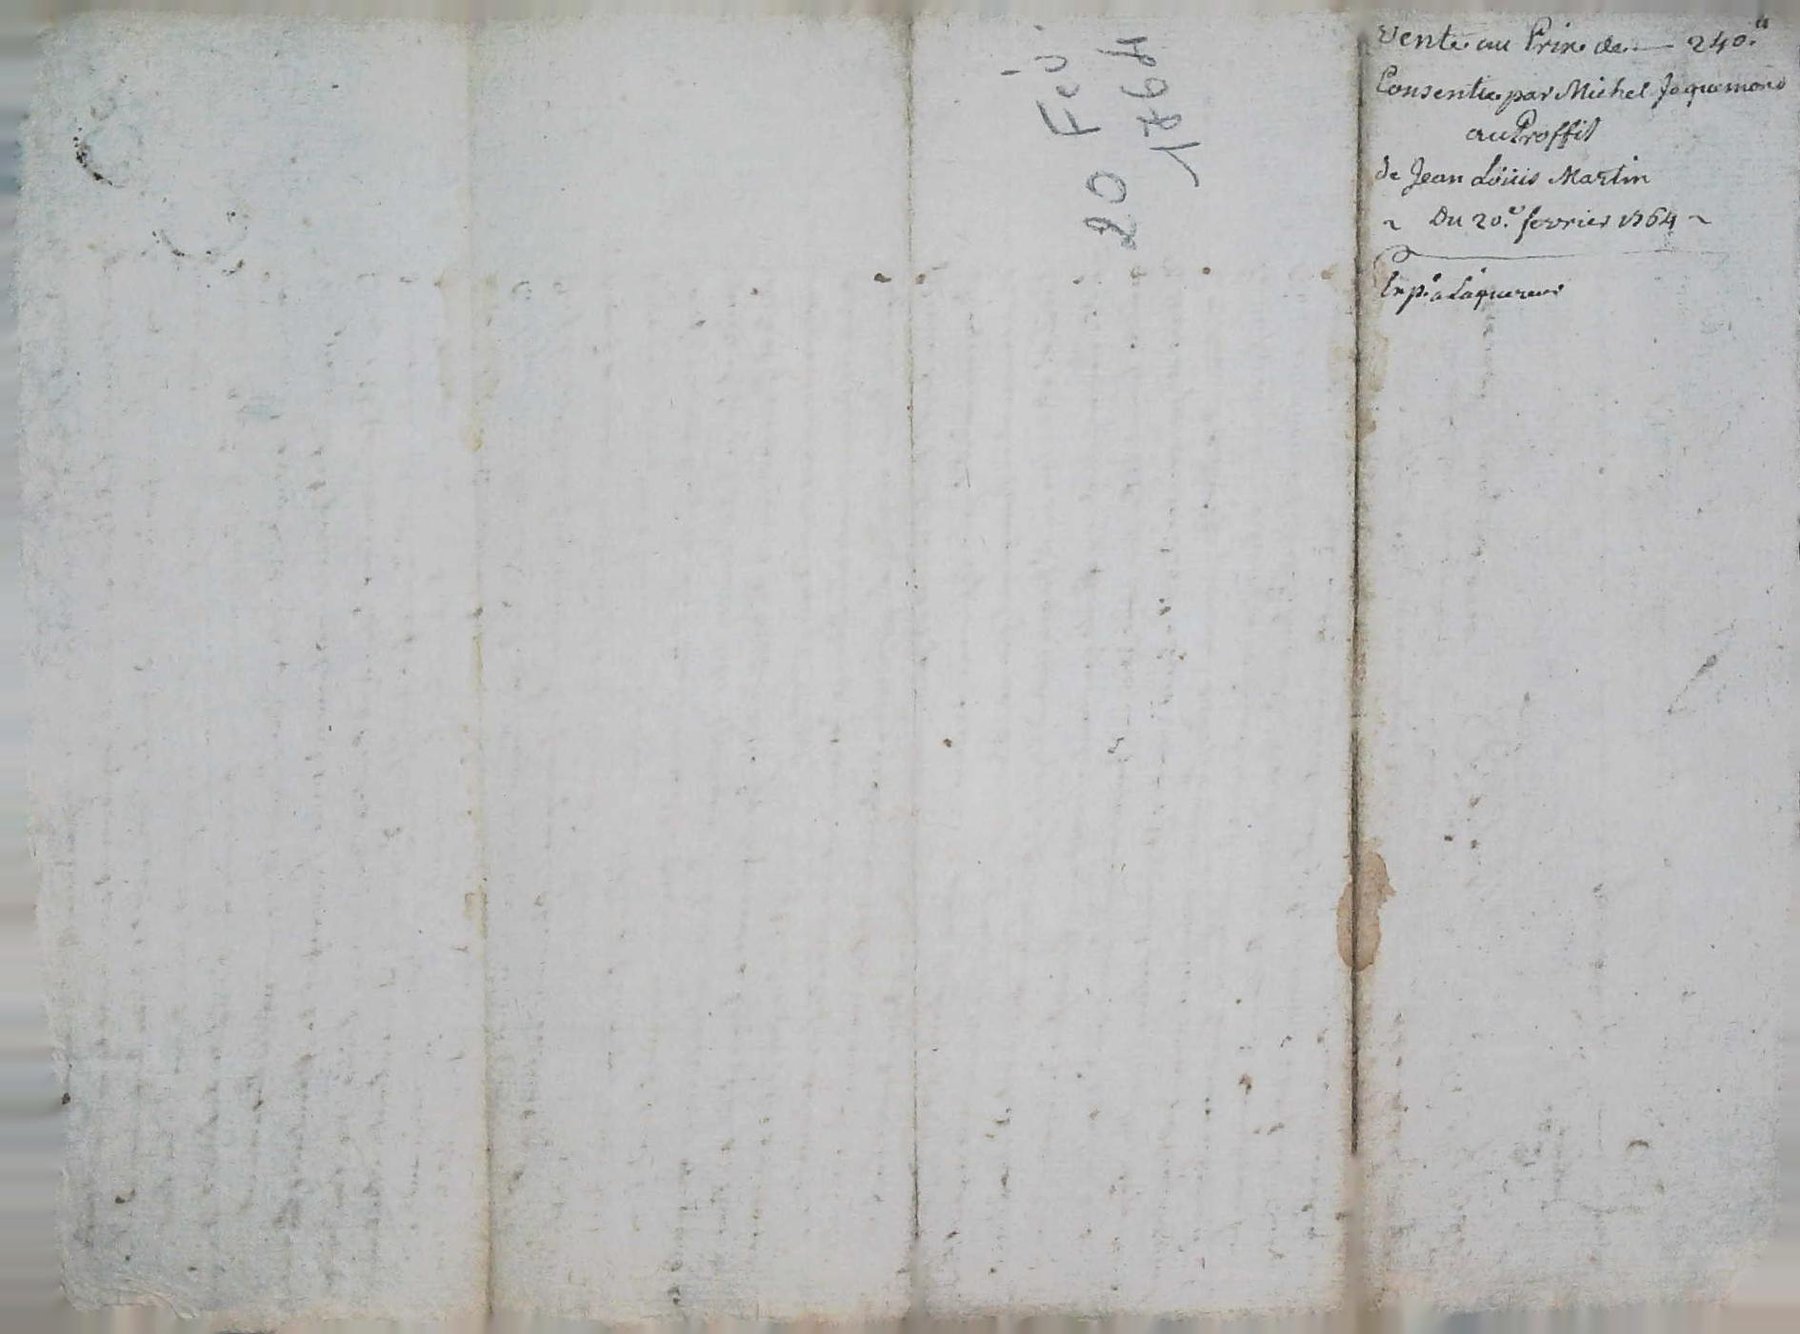 Vente au Prix de — 240.ᵗᵗ
Consentie par Michel Jaquemond
au Proffit
de Jean Loüis Martin
~ Du 20.ᵉ fevrier 1764 ~
Exp.ᵉ a Laquereur
20 Fév.
1764